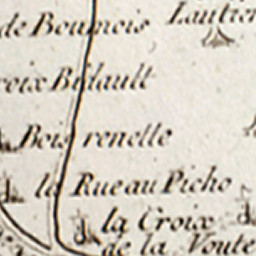 de Bournois
Lautier
roix Bidault
Bois renelle
la Rue au Picho
la Croix
de la Voute